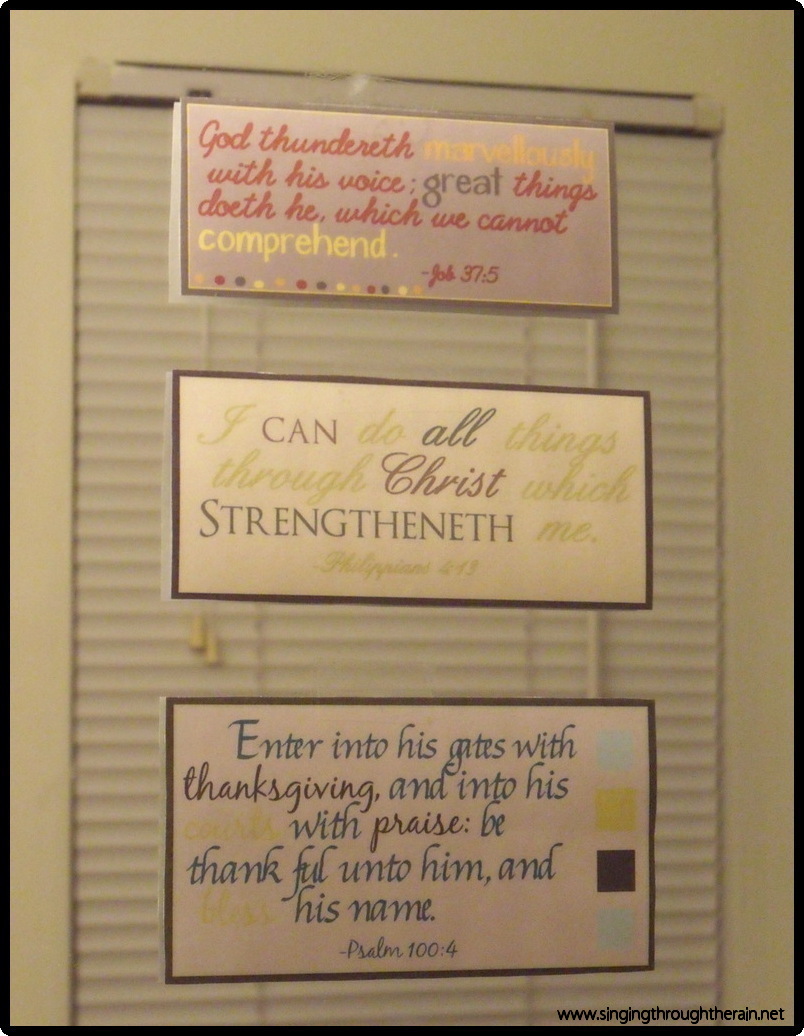 God thundereth marvellously
with his voice; great things
doeth he, which we cannot
comprehend.
-Job 37:5
I CAN do all things
through Christ which
STRENGTHENETH me.
-Philippians 4:13
Enter into his gates with
thanksgiving, and into his
courts with praise: be
thank ful unto him, and
bless his name.
-Psalm 100:4
www.singingthroughtherain.net